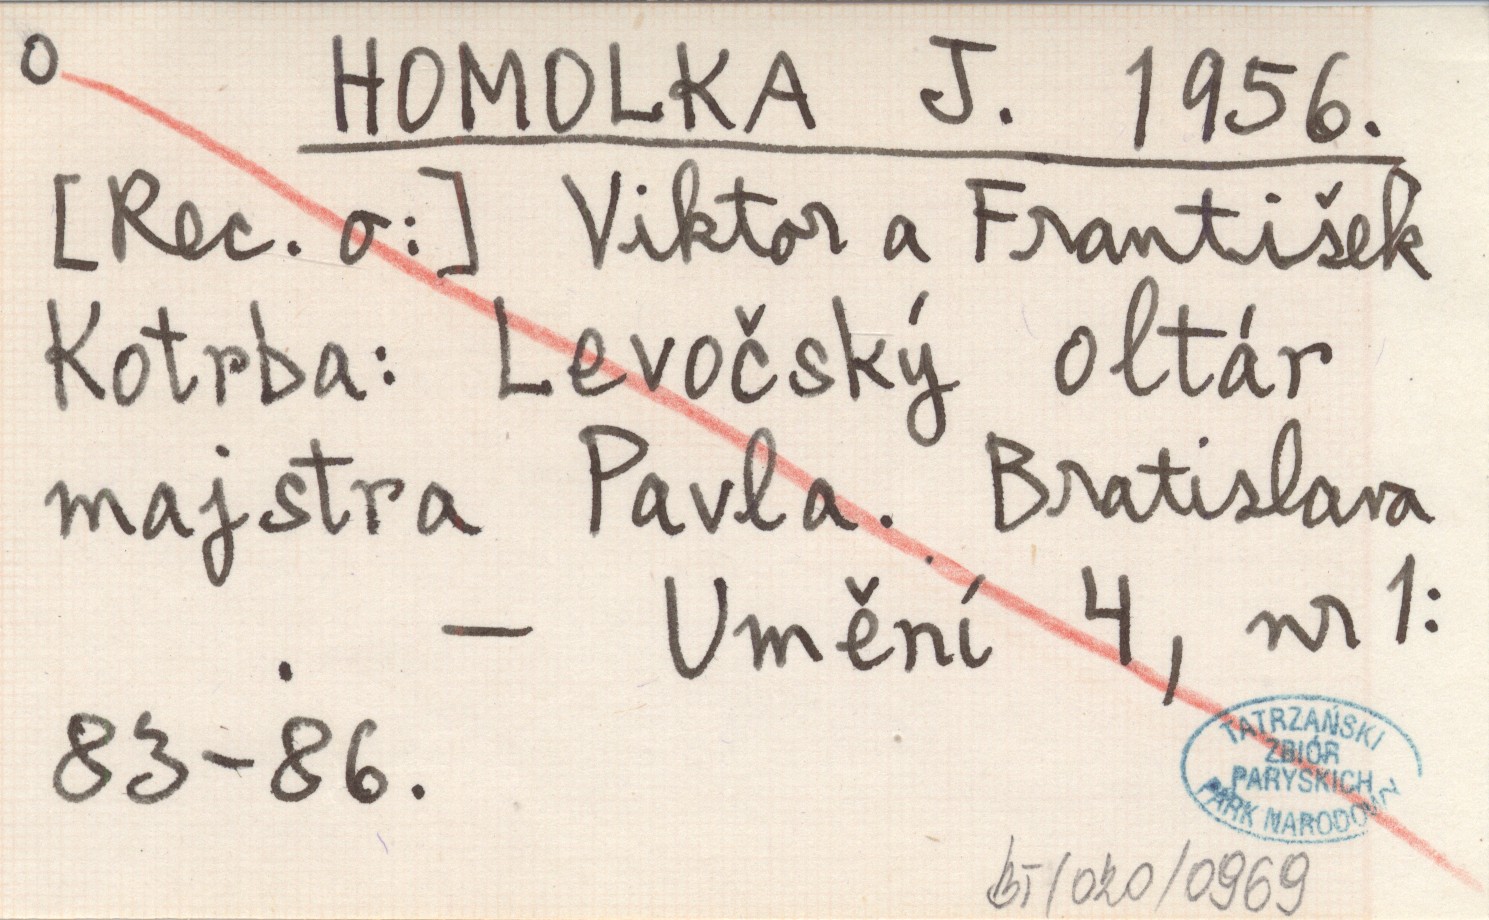 o HOMOLKA J. 1956.
[Rec. o:] Viktor a František
Kotrba: Levočský oltár
majstra Pavla. Bratislava
— Umění 4, nr 1:
83-86.
TATRZAŃSKI
ZBIÓR
PARYSKICH
PARK NARODOWY
BT/020/0969